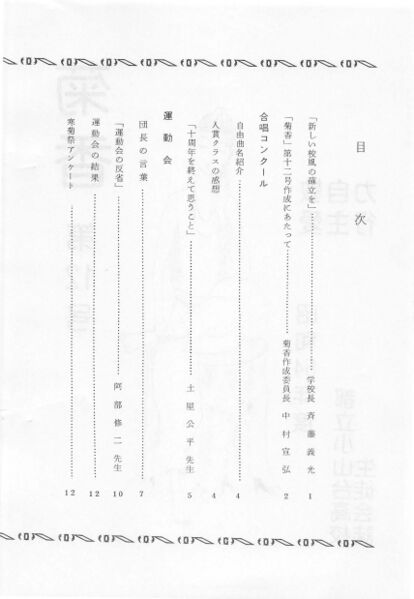 目次
「新しい校風の確立を」 学校長 斉藤義光 1
「菊香」第十二号作成にあたって 菊香作成委員長 中村宣弘 2
合唱コンクール
自由曲名紹介 4
入賞クラスの感想 4
「十周年を終えて思うこと」 土屋公平先生 5
運動会
団長の言葉 7
「運動会の反省」 阿部修二先生 10
運動会の結果 12
寒菊祭アンケート 12